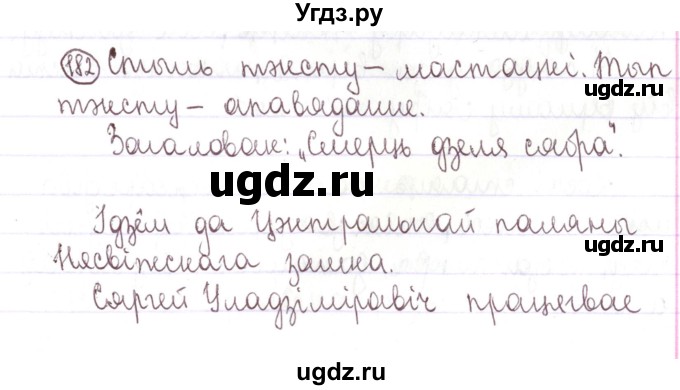 Угдз.ру
182 Стыль тэксту – мастацкі. Тып
тэксту – апавяданне.
Загаловак: „Смерць дзеля сябра".
ugdz.ru
ugdz.ru
Ідзём да Цэнтральнай паляны
ugdz.ru
Нясвіжскага замка.
Сяргей Уладзіміравіч працягвае
ugdz.ru
ugdz.ru